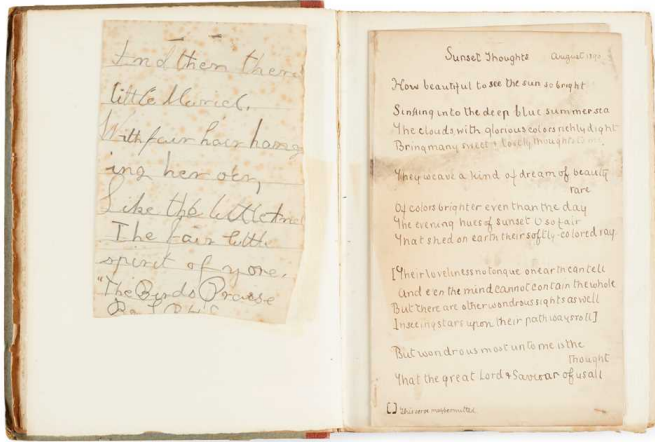 And then there
little Muriel,
With fair hair hang
ing her oer,
Like the little
The fair little
spirit of yore.
"The Birds Praise
Sunset Thoughts August
How beautiful to see the sun so bright
Sinking into the deep blue summer sea
The clouds with glorious colors richly dight
Bring many sweet & lovely thoughts to me.
They weave a kind of dream of beauty
rare
Of colors brighter even than the day
The evening hues of sunset O so fair
That shed on earth their softly-colored ray.
[Their loveliness no tongue on earth can tell
And e'en the mind cannot contain the whole
But there are other wondrous sights as well
In seeing stars upon their pathways roll]
But wondrous most unto me is the
thought
That the great Lord & Saviour of us all
[ ] This verse may be omitted.